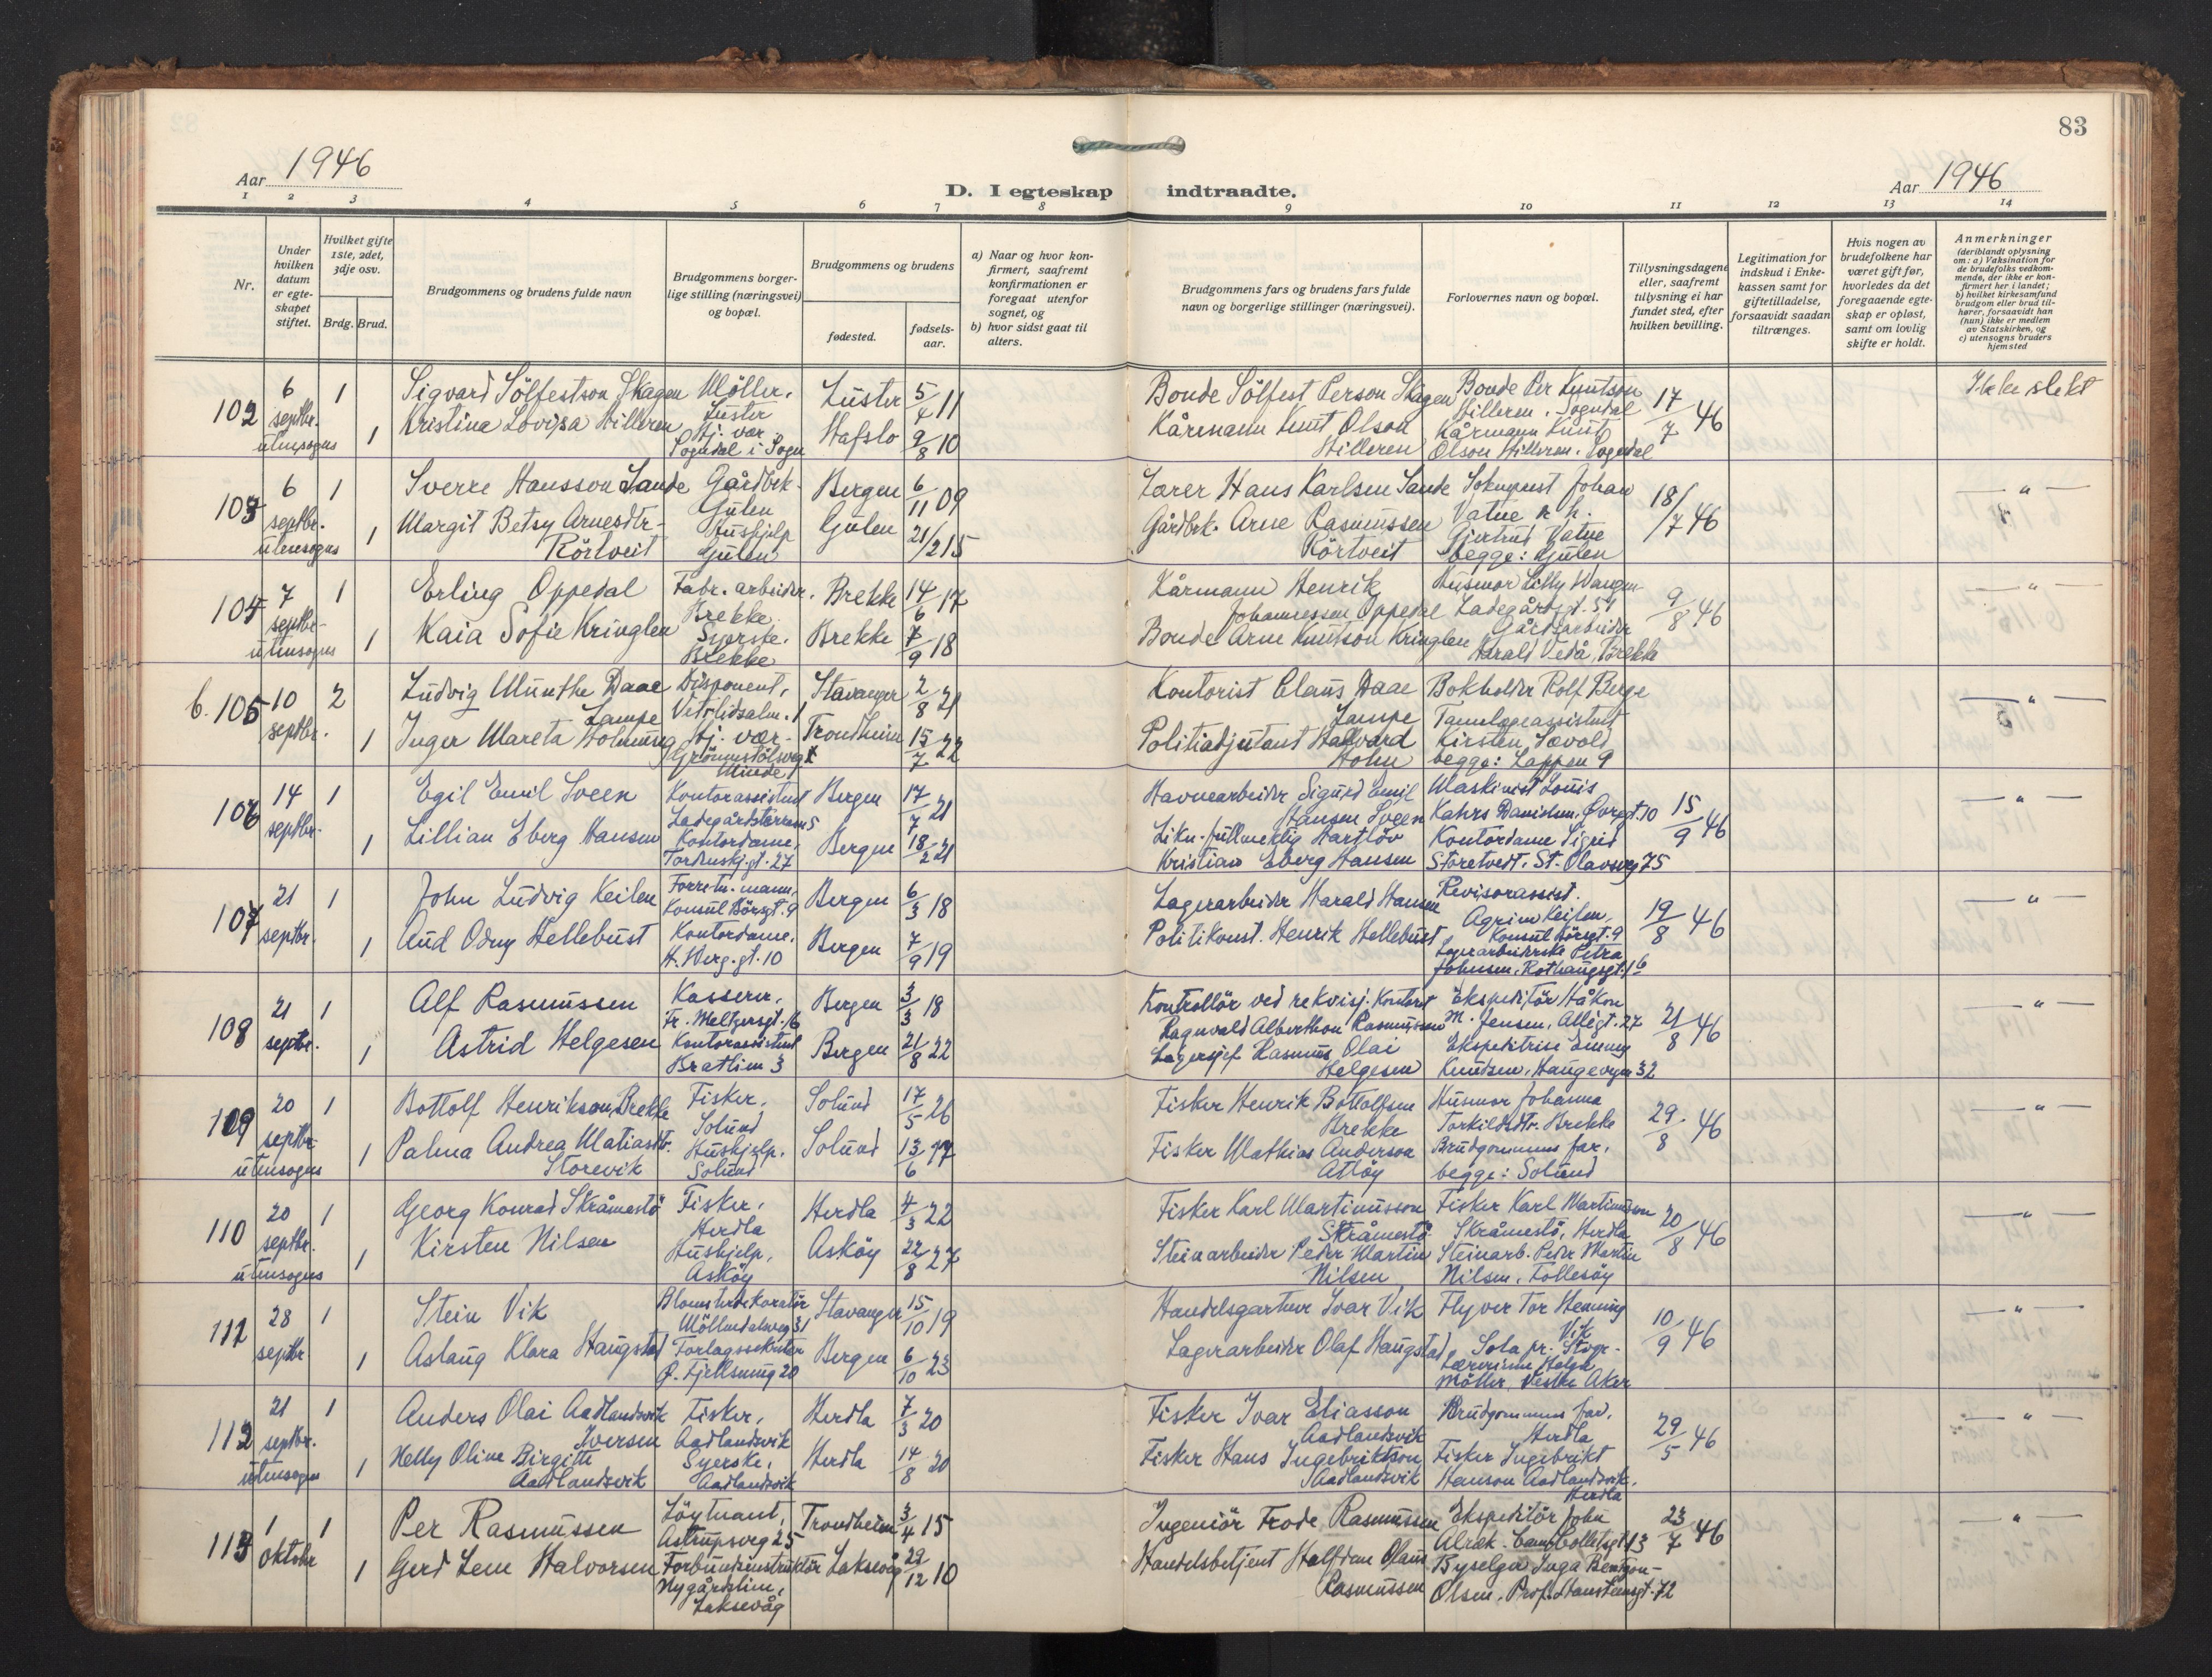 83
Aar 1946
D. I egteskap indtraadte.
Aar 1946
1 2 3 4 5 6 7 8 9 10 11 12 13 14
Nr.
Under hvilken datum er egte- skapet stiftet.
Hvilket gifte 1ste, 2det, 3dje osv.
Brdg. Brud.
Brudgommens og brudens fulde navn
Brudgommens borger- lige stilling (næringsvei) og bopæl.
Brudgommens og brudens
fødested.
fødsels- aar.
a) Naar og hvor kon- firmert, saafremt konfirmationen er foregaat utenfor sognet, og
b) hvor sidst gaat til alters.
Brudgommens fars og brudens fars fulde navn og borgerlige stillinger (næringsvei).
Forlovernes navn og bopæl.
Tillysningsdagene eller, saafremt tillysning ei har fundet sted, efter hvilken bevilling.
Legitimation for indskud i Enke- kassen samt for giftetilladelse, forsaavidt saadan tiltrænges.
Hvis nogen av brudefolkene har været gift før, hvorledes da det foregaaende egte- skap er opløst, samt om lovlig skifte er holdt.
Anmerkninger
(deriblandt oplysning om: a) Vaksination for de brudefolks vedkom- mende, der ikke er kon- firmert her i landet; b) hvilket kirkesamfund brudgom eller brud til- hører, forsaavidt han (hun) ikke er medlem av Statskirken, og c) utensogns bruders hjemsted
102 6 septbr. utensogns 1 1
Sigvard Sölfestson Skagen
Kristina Lovisa Hilleren
Möller. Luster
Hj. vær. Sogndal i Sogn
Luster 5/4 11
Hafslo 9/8 10
Bonde Sölfest Person Skagen
Kårmann Knut Olson Hilleren
Bonde Per Knutson Hilleren. Sogndal
Kårmann Knut Olson Hilleren. Sogndal
17/7 46
Ikke slekt
103 6 septbr. utensogns 1 1
Sverre Hansson Sande
Margit Betsy Arnesdtr. Rörtveit
Gårdbrk. Gulen
Hushjelp Gulen
Bergen 6/11 09
Gulen 21/2 15
Lærer Hans Karlsen Sande
Gårdbrk. Arne Rasmussen Rörtveit
Sokneprest Johan Vatne
Gjertrud Vatne
begge: Gulen
18/7 46
— " —
104 7 septbr. utensogns 1 1
Erling Oppedal
Kaia Sofie Kringlen
Fabr. arbeider. Brekke
Syerske. Brekke
Brekke 14/6 17
Brekke 7/9 18
Kårmann Henrik Johannessen Oppedal
Bonde Arne Knutson Kringlen
Husmor Lilly Wangen Ladegårdsgt. 51
Gårdsarbeider Harald Vedå, Brekke
9/8 46
— " —
b. 105 10 septbr. 2 1
Ludvig Munthe Daae Lampe
Inger Mareta Holm
Disponent, Vetrlidsalm. 1
Hj. vær. Grönnestölsveg Minde
Stavanger 2/8 21
Trondheim 15/7 22
Kontorist Claus Daae Lampe
Politiadjutant Hallvard Holm
Bokholder Rolf Berge
Tannlegeassistent Kirsten Sævold
begge: Lappen 9
— " —
106 14 septbr. 1 1
Egil Emil Sveen
Lillian Eberg Hansen
Kontorassistent Ladegårdsterrassen 5
Kontordame, Tordenskj.gt. 27
Bergen 17/7 21
Bergen 18/2 21
Havnearbeider Sigurd Emil Hansen Sveen
Likn.fullmektig Hartlöv Kristian Eberg Hansen
Maskinist Louis Kahrs Danielsen, Øvregt. 10
Kontordame Sigrid Storetvedt. St. Olavsveg 75
15/9 46
— " —
107 21 septbr. 1 1
John Ludvig Keilen
Aud Odny Hellebust
Forretn.mann, Konsul Börsgt. 9
Kontordame. H. Werg. gt. 10
Bergen 6/3 18
Bergen 7/9 19
Lagerarbeider Harald Hansen
Politikonst. Henrik Hellebust
Revisorassist. Keilen, Konsul Börsgt. 9
Lagerarbeiderske Petra Johnsen. Rothaugsgt. 16
19/8 46
— " —
108 21 septbr. 1 1
Alf Rasmussen
Astrid Helgesen
Kasserer, Fr. Meltzersgt. 16
Kontorassistent Bratlien 3
Bergen 3/3 18
Bergen 21/8 22
Kontrollör ved rekvisj.kontoret Ragnvald Alberthon Rasmussen
Lagersjef Rasmus Olai Helgesen
Ekspeditör Håkon M. Jensen, Allégt. 27
Ekspeditrise Emmy Knudsen, Haugevegen 32
21/8 46
— " —
109 20 septbr. utensogns 1 1
Bottolf Henrikson Brekke
Palma Andrea Matiasdtr. Storevik
Fisker. Solund
Hushjelp. Solund
Solund 17/5 26
Solund 13/6 27
Fisker Henrik Bottolfsen Brekke
Fisker Mathias Anderson Atlöy
Husmor Johanna Torkildsdtr. Brekke
Brudgommens far.
begge: Solund
29/8 46
— " —
110 20 septbr. utensogns 1 1
Georg Konrad Skråmestö
Kirsten Nilsen
Fisker, Herdla
Hushjelp, Asköy
Herdla 4/3 22
Asköy 22/8 27
Fisker Karl Martinusson Skråmestö
Steinarbeider Peder Martin Nilsen
Fisker Karl Martinusson Skråmestö, Herdla
Steinarb. Peder Martin Nilsen, Follesöy
20/8 46
— " —
111 28 septbr. 1 1
Stein Vik
Aslaug Klara Haugstad
Blomsterdekoratör Möllendalsveg 31
Forlagssekretær Ø. Fjellsmug 20
Stavanger 15/10 19
Bergen 6/10 23
Handelsgartner Ivar Vik
Lagerarbeider Olaf Haugstad
Flyver Tor Henning Vik Sola pr. Stvgr.
Lærerinne Helga Möller. Vestre Aker
10/9 46
— " —
112 21 septbr. utensogns 1 1
Anders Olai Aadlandsvik Iversen
Nelly Oline Birgitte Aadlandsvik
Fisker, Aadlandsvik
Syerske, Aadlandsvik
Herdla 7/3 20
Herdla 14/8 20
Fisker Ivar Eliasson Aadlandsvik
Fisker Hans Ingebriktson Aadlandsvik
Brudgommens far. Herdla
Fisker Ingebrikt Hanson Aadlandsvik. Herdla
29/5 46
— " —
113 1 oktobr 1 1
Per Rasmussen
Gerd Lem Halvorsen
Löytnant, Astrupsveg 25
Forbundsinstruktör Nygårdslien, Laksevåg
Trondheim 3/4 15
Laksevåg 22/12 10
Ingeniör Frode Rasmussen
Handelsbetjent Halfdan Olaus Rasmussen
Ekspeditör John Alræk. Cam. Colletsgt. 13
Byselga Inga Bentzon-Olsen. Prof. Hansteensgt. 72
23/7 46
— " —